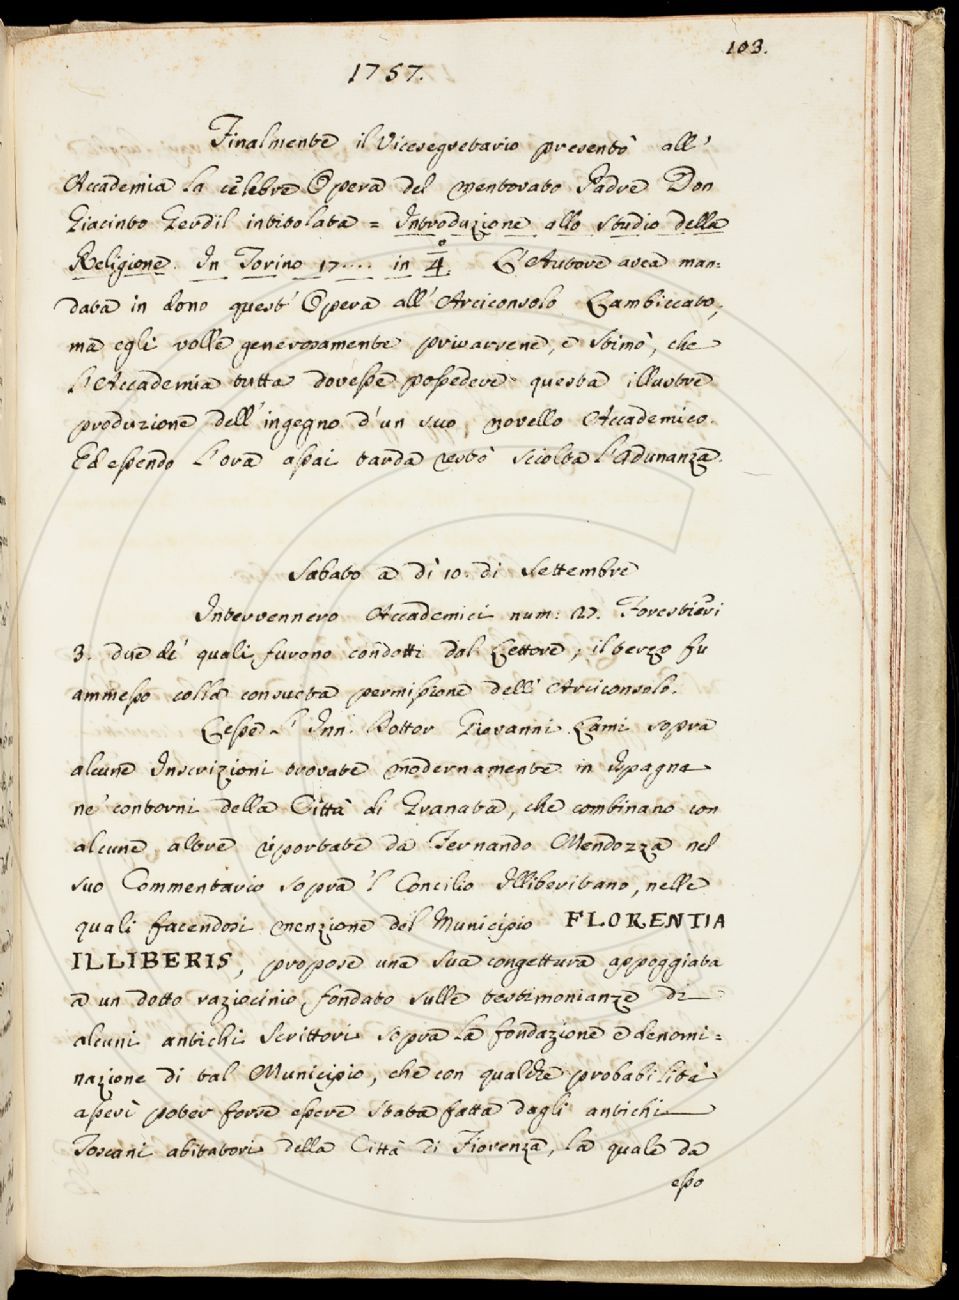 103.
1757.
Finalmente il Vicesegretario presentò all'
Accademia la celebre Opera del mentovato Padre Don
Giacinto Gerdil intitolata = Introduzione allo studio della
Religione. In Torino 17.... in 4.º L'Autore avea man=
data in dono quest' Opera all' Arciconsolo Gambiccato;
ma egli volle generosamente privarsene, e stimò, che
l'Accademia tutta dovesse possedere questa illustre
produzione dell' ingegno d' un suo novello Accademico.
Ed essendo l' ora assai tarda restò sciolta l'Adunanza.
Sabato a dì 10. di Settembre
Intervennero Accademici num: 27. Forestieri
3. due de' quali furono condotti dal Lettore, il terzo fu
ammesso colla consueta permissione dell' Arciconsolo.
Lesse l' Inn. Dottor Giovanni Lami sopra
alcune Inscrizioni trovate modernamente in Ispagna
ne' contorni della Città di Granata, che combinano con
alcune altre riportate da Fernando Mendozza nel
suo Commentario sopra 'l Concilio Illiberitano, nelle
quali facendosi menzione del Municipio FLORENTIA
ILLIBERIS, propose una sua congettura appoggiata
a un dotto raziocinio, fondato sulle testimonianze di
alcuni antichi Scrittori sopra la fondazione e denomi=
nazione di tal Municipio, che con qualche probabilità
asserì poter forse essere stata fatta dagli antichi
Toscani abitatori della Città di Fiorenza, la quale da
esso